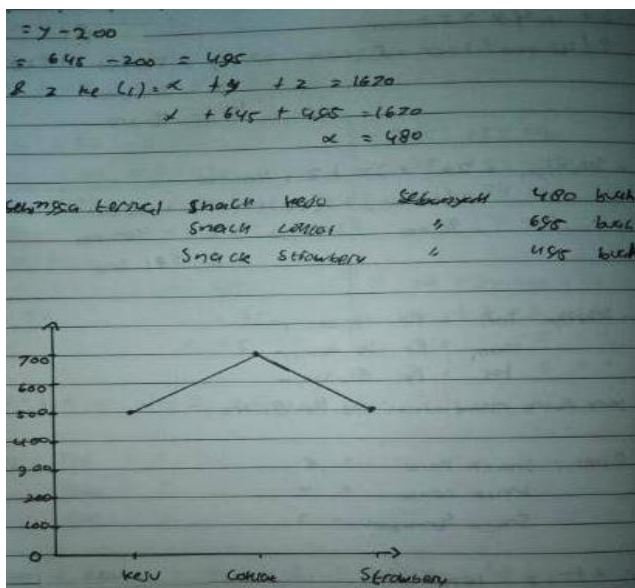 = y - 200
= 645 - 200 = 495
& z ke (1) = x + y + z = 1620
x + 645 + 495 = 1620
x = 480
Sehingga terjual Snack keju sebanyak 480 buah
Snack coklat " 695 buah
Snack Strawbery " 495 buah
700
600
500
400
300
200
100
0
keju Coklat Strawbery